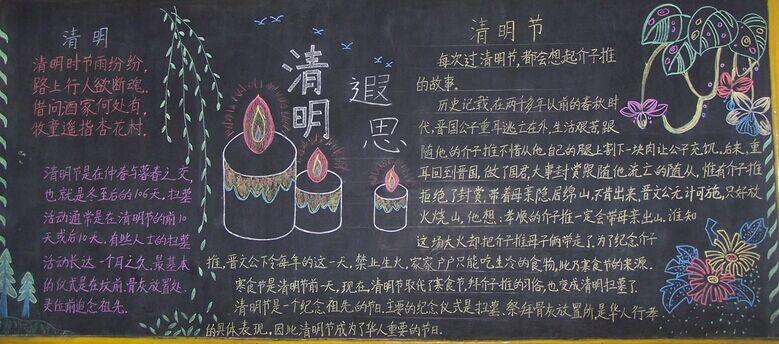 清明
清明时节雨纷纷,
路上行人欲断魂。
借问酒家何处有,
牧童遥指杏花村。
清明节是在仲春与暮春之交,
也就是冬至后的106天,扫墓
活动通常是在清明节的前10
天或后10天。有些人士的扫墓
活动长达一个月之久,最基本
的仪式是在坟前、骨灰放置处、
灵位前追念祖先。
清明
遐思
清明节
每次过清明节,都会想起介子推
的故事。
历史记载,在两千多年以前的春秋时
代,晋国公子重耳逃亡在外,生活艰苦,跟
随他的介子推不惜从他自己的腿上割下一块肉让公子充饥。后来,重
耳回到晋国,做了国君,大事封赏跟随他流亡的随从,惟有介子推
拒绝了封赏,带着母亲隐居绵山,不肯出来,晋文公无计可施,只好放
火烧山,他想:孝顺的介子推一定会带母亲出山。谁知
这场大火却把介子推母子俩带走了,为了纪念介子
推,晋文公下令每年的这一天,禁止生火,家家户户只能吃生冷的食物,此乃寒食节的来源。
寒食节是清明节前一天,现在,清明节取代了寒食节,拜介子推的习俗,也变成清明扫墓了。
清明节是一个纪念祖先的节日。主要的纪念仪式是扫墓、祭拜骨灰放置所,是华人行孝
的具体表现。因此清明节成为了华人重要的节日。